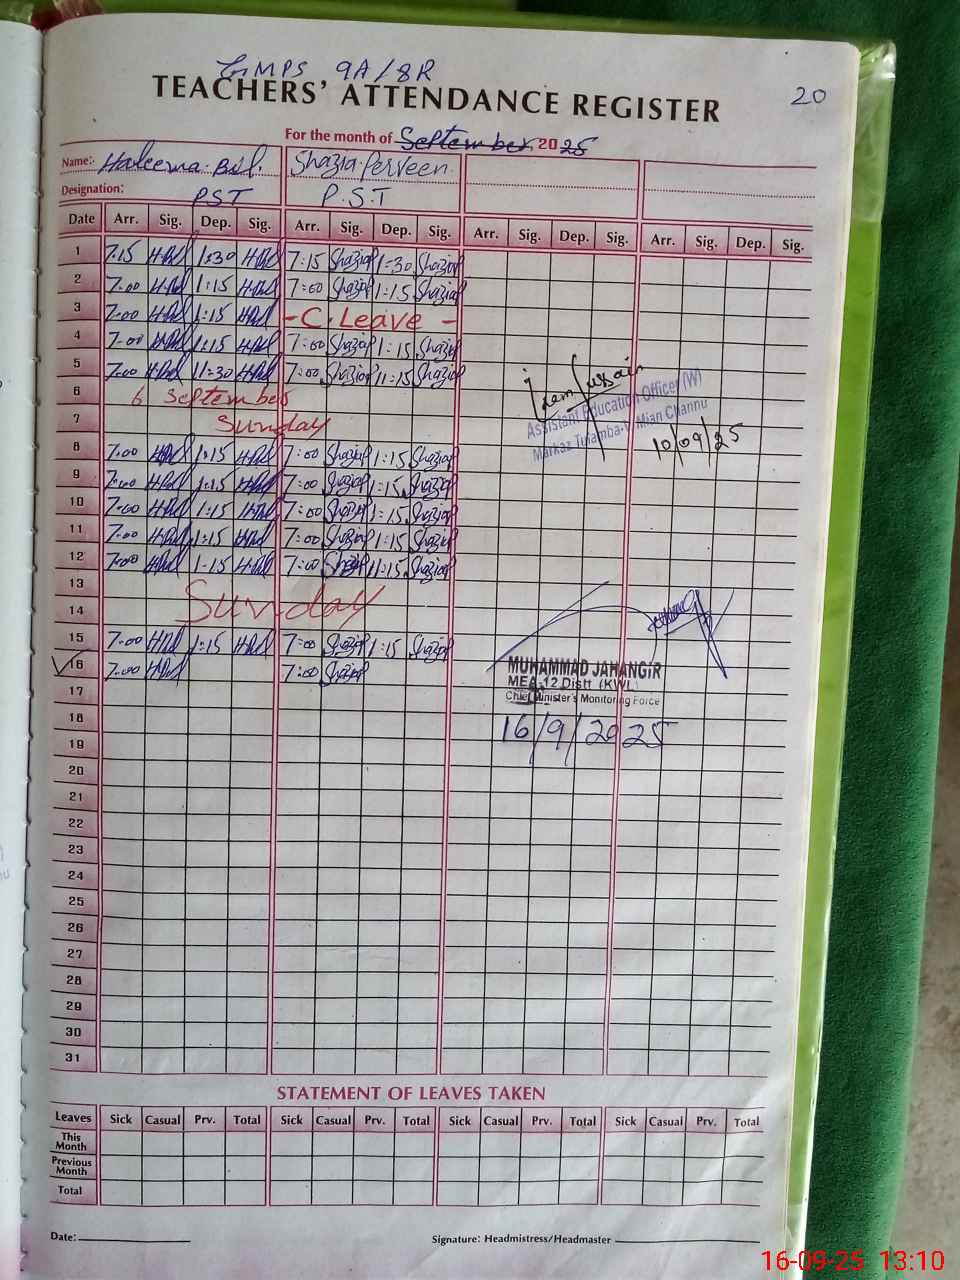 GMPS 9A/8R
20
TEACHERS' ATTENDANCE REGISTER
For the month of September 2025
Name:- Haleema Bibi. Shazia Perveen.
Designation: PST P.S.T
Date Arr. Sig. Dep. Sig. Arr. Sig. Dep. Sig. Arr. Sig. Dep. Sig. Arr. Sig. Dep. Sig.
1 7.15 HBd 1:30 HBd 7:15 Shaziap 1:30 Shaziap
2 7.00 HBd 1:15 HBd 7:00 Shaziap 1:15 Shaziap
3 7.00 HBd 1:15 HBd - C. Leave -
4 7.00 HBd 1:15 HBd 7:00 Shaziap 1:15 Shaziap
5 7.00 HBd 11:30 HBd 7:00 Shaziap 11:15 Shaziap
6 6 September
7 Sunday
8 7.00 HBd 1:15 HBd 7:00 Shaziap 1:15 Shaziap
9 7.00 HBd 1:15 HBd 7:00 Shaziap 1:15 Shaziap
10 7.00 HBd 1:15 HBd 7:00 Shaziap 1:15 Shaziap
11 7.00 HBd 1:15 HBd 7:00 Shaziap 1:15 Shaziap
12 7.00 HBd 1:15 HBd 7:00 Shaziap 1:15 Shaziap
13
14 Sunday
15 7.00 HBd 1:15 HBd 7:00 Shaziap 1:15 Shaziap
16 7.00 HBd 7:00 Shaziap
17
18
19
20
21
22
23
24
25
26
27
28
29
30
31
Assistant Education Officer (W)
Markaz Tulamba-V Mian Channu
10/09/25
MUHAMMAD JAHANGIR
MEA-12 Distt (KWL)
Chief Minister's Monitoring Force
16/9/2025
STATEMENT OF LEAVES TAKEN
Leaves Sick Casual Prv. Total Sick Casual Prv. Total Sick Casual Prv. Total Sick Casual Prv. Total
This Month
Previous Month
Total
Date:
Signature: Headmistress/Headmaster
16-09-25 13:10